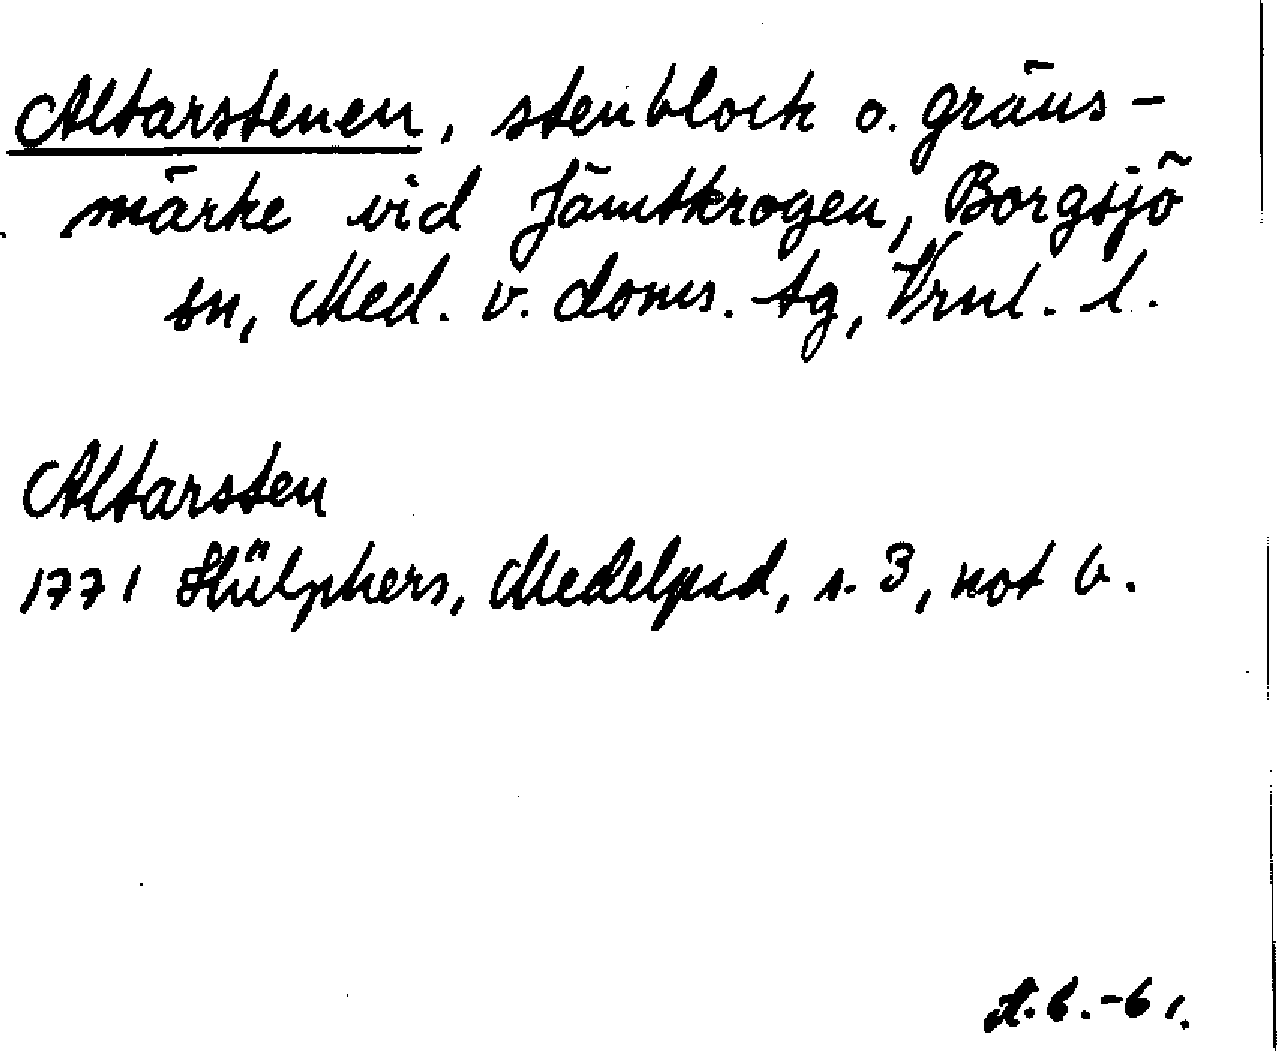 Altarstenen, stenblock o. gräns-
märke vid Jämtkrogen, Borgsjö
sn, Med. v. doms. tg, Vrnl. l.
Altarsten
1771 Hülphers, Medelpad, s. 3, not b.
A.B.-61.